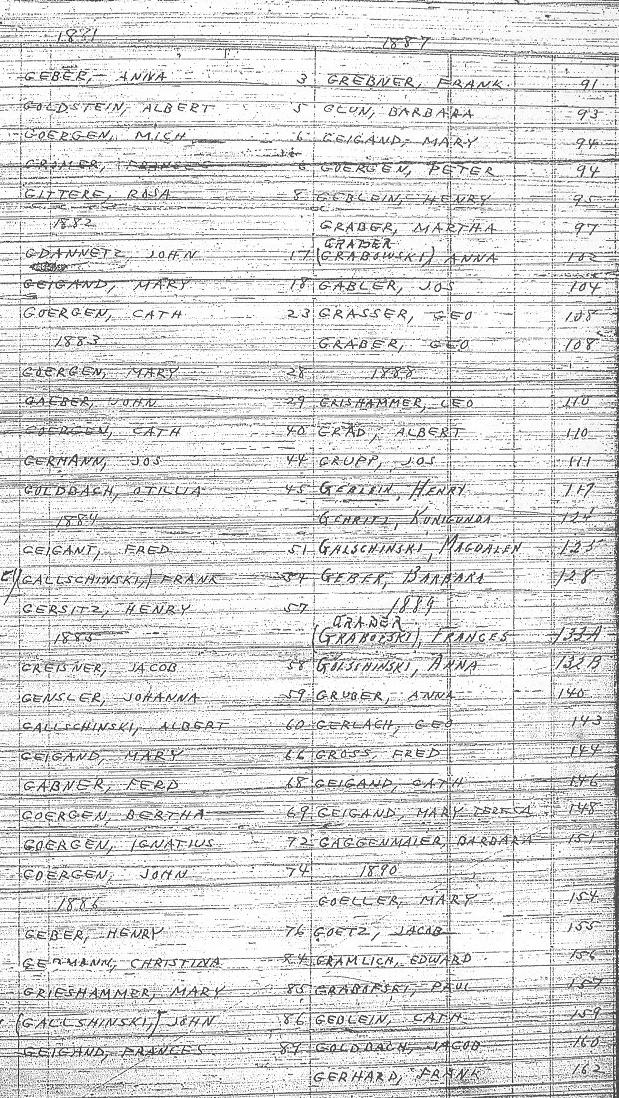 1881
GEBER, ANNA 3
GOLDSTEIN, ALBERT 5
GOERGEN, MICH 6
GROMER, FRANCES 6
GITTERE, ROSA 8
1882
GDANNETZ, JOHN 17
GEIGAND, MARY 18
GOERGEN, CATH 23
1883
GOERGEN, MARY 28
GAEBER, JOHN 29
GOERGEN, CATH 40
GERMANN, JOS 44
GOLDBACH, OTILLIA 45
1884
GEIGANT, FRED 51
(GALLSCHINSKI,) FRANK 54
GERSITZ, HENRY 57
1885
GREISNER, JACOB 58
GENSLER, JOHANNA 59
GALLSCHINSKI, ALBERT 60
GEIGAND, MARY 66
GABNER, FERD 68
GOERGEN, BERTHA 69
GOERGEN, IGNATIUS 72
GOERGEN, JOHN 74
1886
GEBER, HENRY 76
GERMANN, CHRISTINA 84
GRIESHAMMER, MARY 85
(GALLSHINSKI,) JOHN 86
GEIGAND, FRANCES 89
1887
GREBNER, FRANK 91
GLUN, BARBARA 93
GEIGAND, MARY 94
GOERGEN, PETER 94
GEBLEIN, HENRY 95
GRABER, MARTHA 97
GRADER
(GRABOWSKI) ANNA 102
GABLER, JOS 104
GRASSER, GEO 108
GRABER, GEO 108
1888
GRISHAMMER, LEO 110
GRAD, ALBERT 110
GRUPP, JOS 111
GEBLEIN, HENRY 117
GEHRITZ, KUNIGUNDA 124
GALSCHINSKI, MAGDALEN 125
GEBER, BARBARA 128
1889
GRADER
(GRABOFSKI), FRANCES 133A
GOLSCHINSKI, ANNA 132B
GRUBER, ANNA 140
GERLACH, GEO 143
GROSS, FRED 144
GEIGAND, CATH 146
GEIGAND, MARY TERESA 148
GAGGENMAIER, BARBARA 151
1890
GOELLER, MARY 154
GOETZ, JACOB 155
GRAMLICH, EDWARD 156
GRABOFSKI, PAUL 157
GEBLEIN, CATH 159
GOLDBACH, JACOB 160
GERHARD, FRANK 162